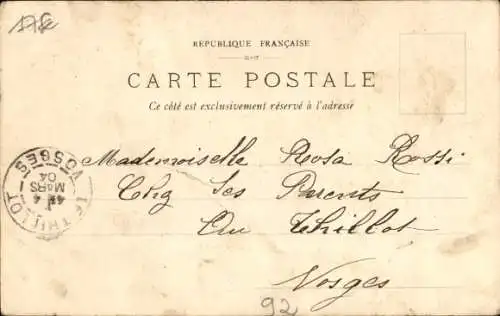 178
REPUBLIQUE FRANÇAISE
CARTE POSTALE
Ce côté est exclusivement réservé à l'adresse
Mademoiselle Rosa Rossi
Chez Ses Parents
Au Thillot
Vosges
92
LE THILLOT
MARS
04
VOSGES